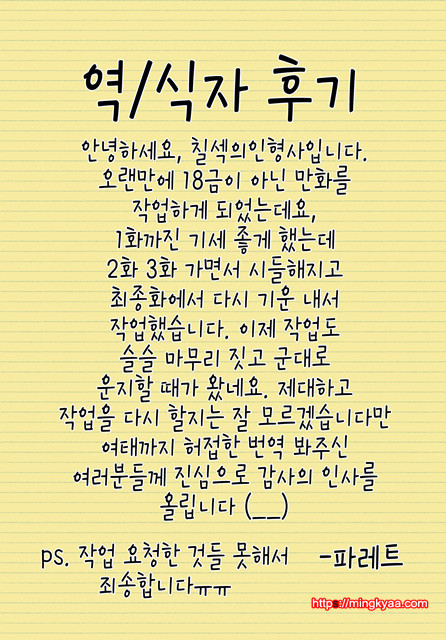 역/식자 후기
안녕하세요, 칠섹의인형사입니다.
오랜만에 18금이 아닌 만화를
작업하게 되었는데요,
1화까진 기세 좋게 했는데
2화 3화 가면서 시들해지고
최종화에서 다시 기운 내서
작업했습니다. 이제 작업도
슬슬 마무리 짓고 군대로
운지할 때가 왔네요. 제대하고
작업을 다시 할지는 잘 모르겠습니다만
여태까지 허접한 번역 봐주신
여러분들께 진심으로 감사의 인사를
올립니다 (__)
ps. 작업 요청한 것들 못해서 -파레트
죄송합니다ㅠㅠ
https://mingkyaa.com